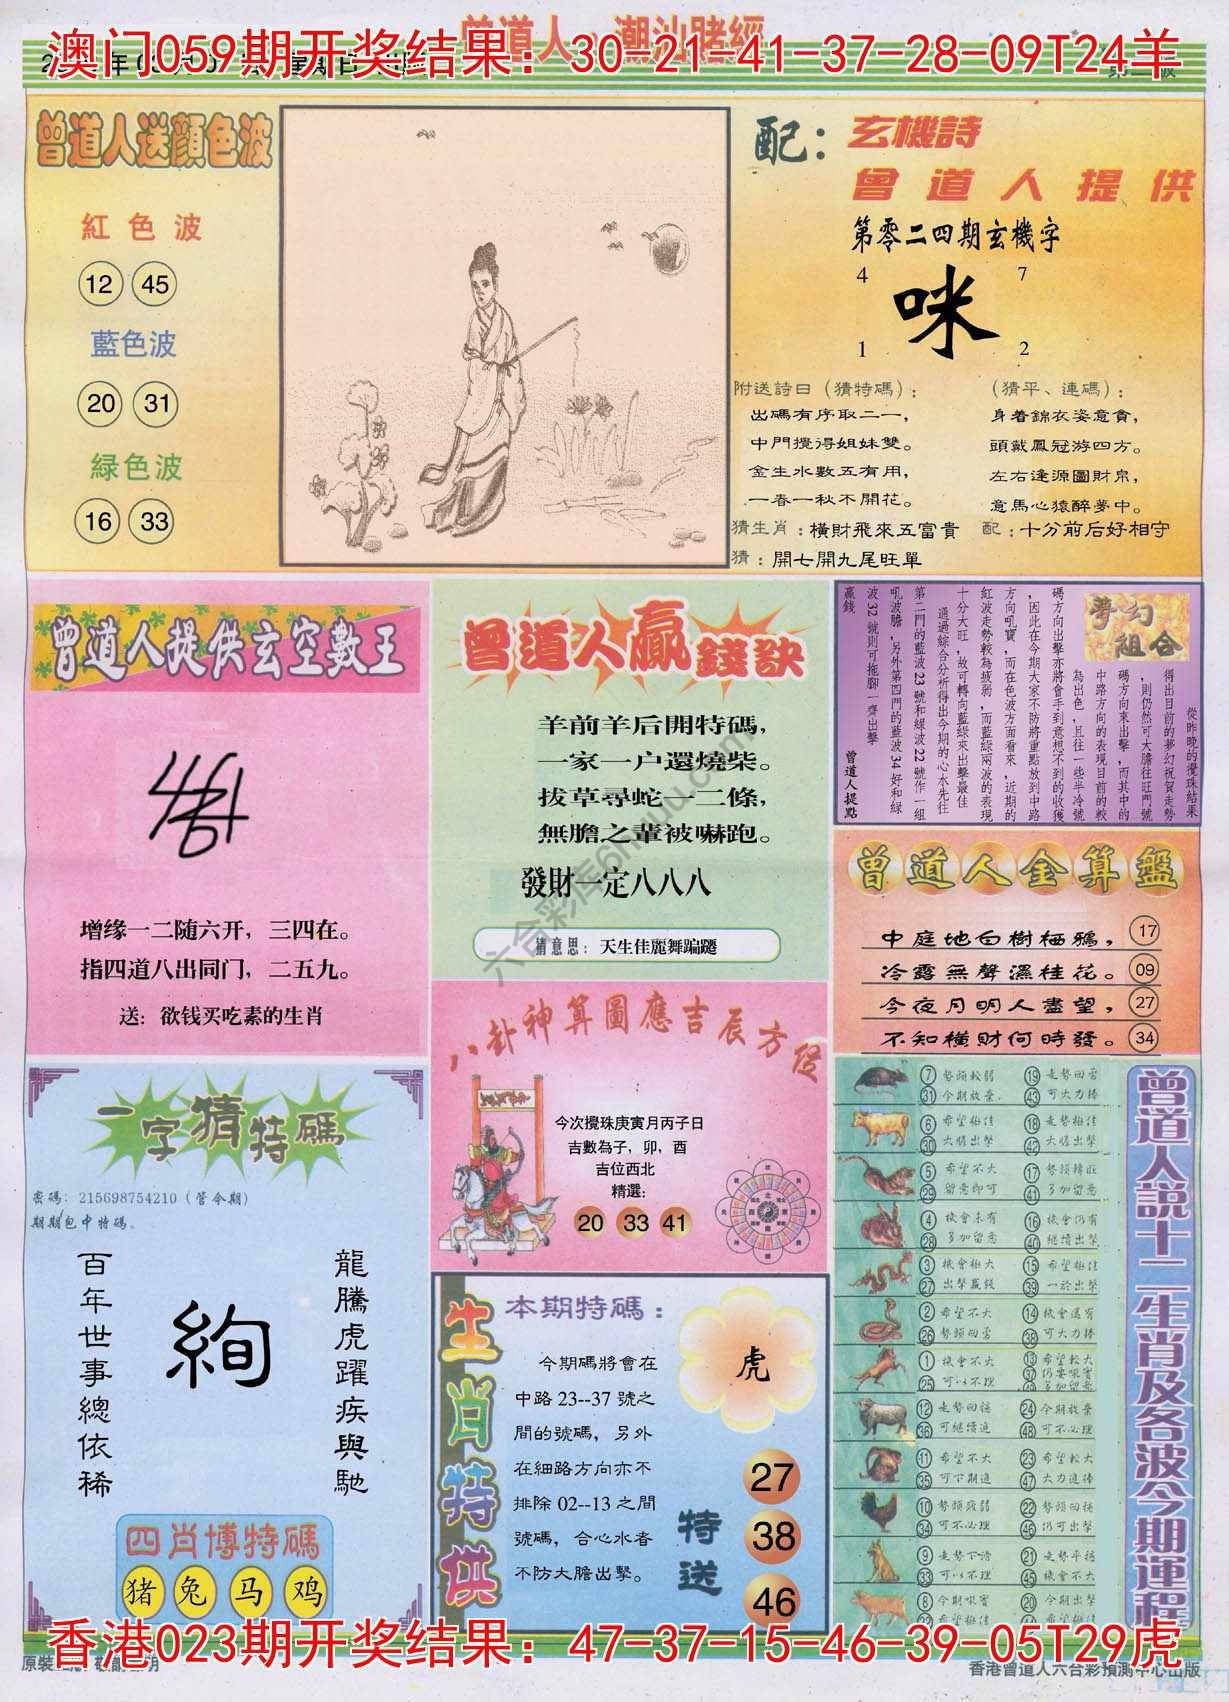 澳门059期开奖结果：30-21-41-37-28-09T24羊
曾道人送顏色波
紅色波
12 45
藍色波
20 31
緑色波
16 33
配：
玄機詩
曾道人提供
第零二四期玄機字
4 7
咪
1 2
附送詩曰（猜特碼）：
出碼有序取二一，
中門攪得姐妹雙。
金生水數五有用，
一春一秋不開花。
（猜平、連碼）：
身着錦衣姿意貪，
頭戴鳳冠游四方。
左右逢源圖財帛，
意馬心猿醉夢中。
猜生肖：橫財飛來五富貴
配：十分前后好相守
猜：開七開九尾旺單
曾道人提供玄空數王
增缘一二随六开，三四在。
指四道八出同门，二五九。
送：欲钱买吃素的生肖
曾道人贏錢訣
羊前羊后開特碼，
一家一户還燒柴。
拔草尋蛇一二條，
無膽之輩被嚇跑。
發財一定八八八
猜意思：天生佳麗舞蹁躚
夢幻組合
從昨晚的攪珠結果
得出目前的夢幻祝賀走勢
，則仍然可大膽往旺門號
碼方向來出擊，而其中的
中路方向的表現目前的較
為出色，且往一些半冷號
碼方向出擊亦將會手到意想不到的收獲
，因此在今期大家不防將重點放到中路
方向吼寶，而在色波方面看來，近期的
紅波走勢較為疲弱，而藍綠兩波的表現
十分大旺，故可轉向藍綠來出擊最佳
通過綜合分析得出今期的心水先往
第二門的藍波23號和綠波22號作一組
吼波膽，另外第四門的藍波34好和綠
波32號則可拖腳一齊出擊
贏錢
曾道人提點
曾道人金算盤
中庭地白樹栖鴉， 17
冷露無聲濕桂花。 09
今夜月明人盡望， 27
不知橫財何時發。 34
八卦神算圖應吉辰方位
今次攪珠庚寅月丙子日
吉數為子，卯，酉
吉位西北
精選：
20 33 41
一字猜特碼
密碼：215698754210（管令期）
期期包中特碼。
百年世事總依稀
絢
龍騰虎躍疾與馳
四肖博特碼
猪 兔 马 鸡
生肖特供
本期特碼：
今期碼將會在
中路23--37號之
間的號碼，另外
在細路方向亦不
排除02--13之間
號碼，合心水者
不防大膽出擊。
虎
特送
27
38
46
曾道人説十二生肖及各波今期運程
7 勢頭較弱 19 走勢回雷
31 今期放棄 43 可大力捧
6 希望極佳 18 走勢極佳
30 大膽出擊 42 大膽出擊
5 希望不大 17 勢頭轉旺
29 留意即可 41 多加留意
4 機會未有 16 機會仍有
28 多加留意 40 繼續出擊
3 機會極大 15 希望極佳
27 出擊贏錢 39 一於出擊
2 希望不大 14 機會還有
26 勢頭回雷 38 可大力捧
1 機會不大 13 希望較大
25 可以不理 37 仍要吼實
12 走勢回穩 24 今期放棄
36 可繼續追 48 可不必理
11 希望不大 23 希望較大
35 可下期追 47 大力追捧
10 勢頭疲弱 22 勢頭回穩
34 可不必理 46 仍可出擊
9 走勢下滑 21 走勢平穩
33 可以不理 45 機會不大
8 今期吼實 20 今期出擊
香港023期开奖结果：47-37-15-46-39-05T29虎
香港曾道人六合彩預測中心出版